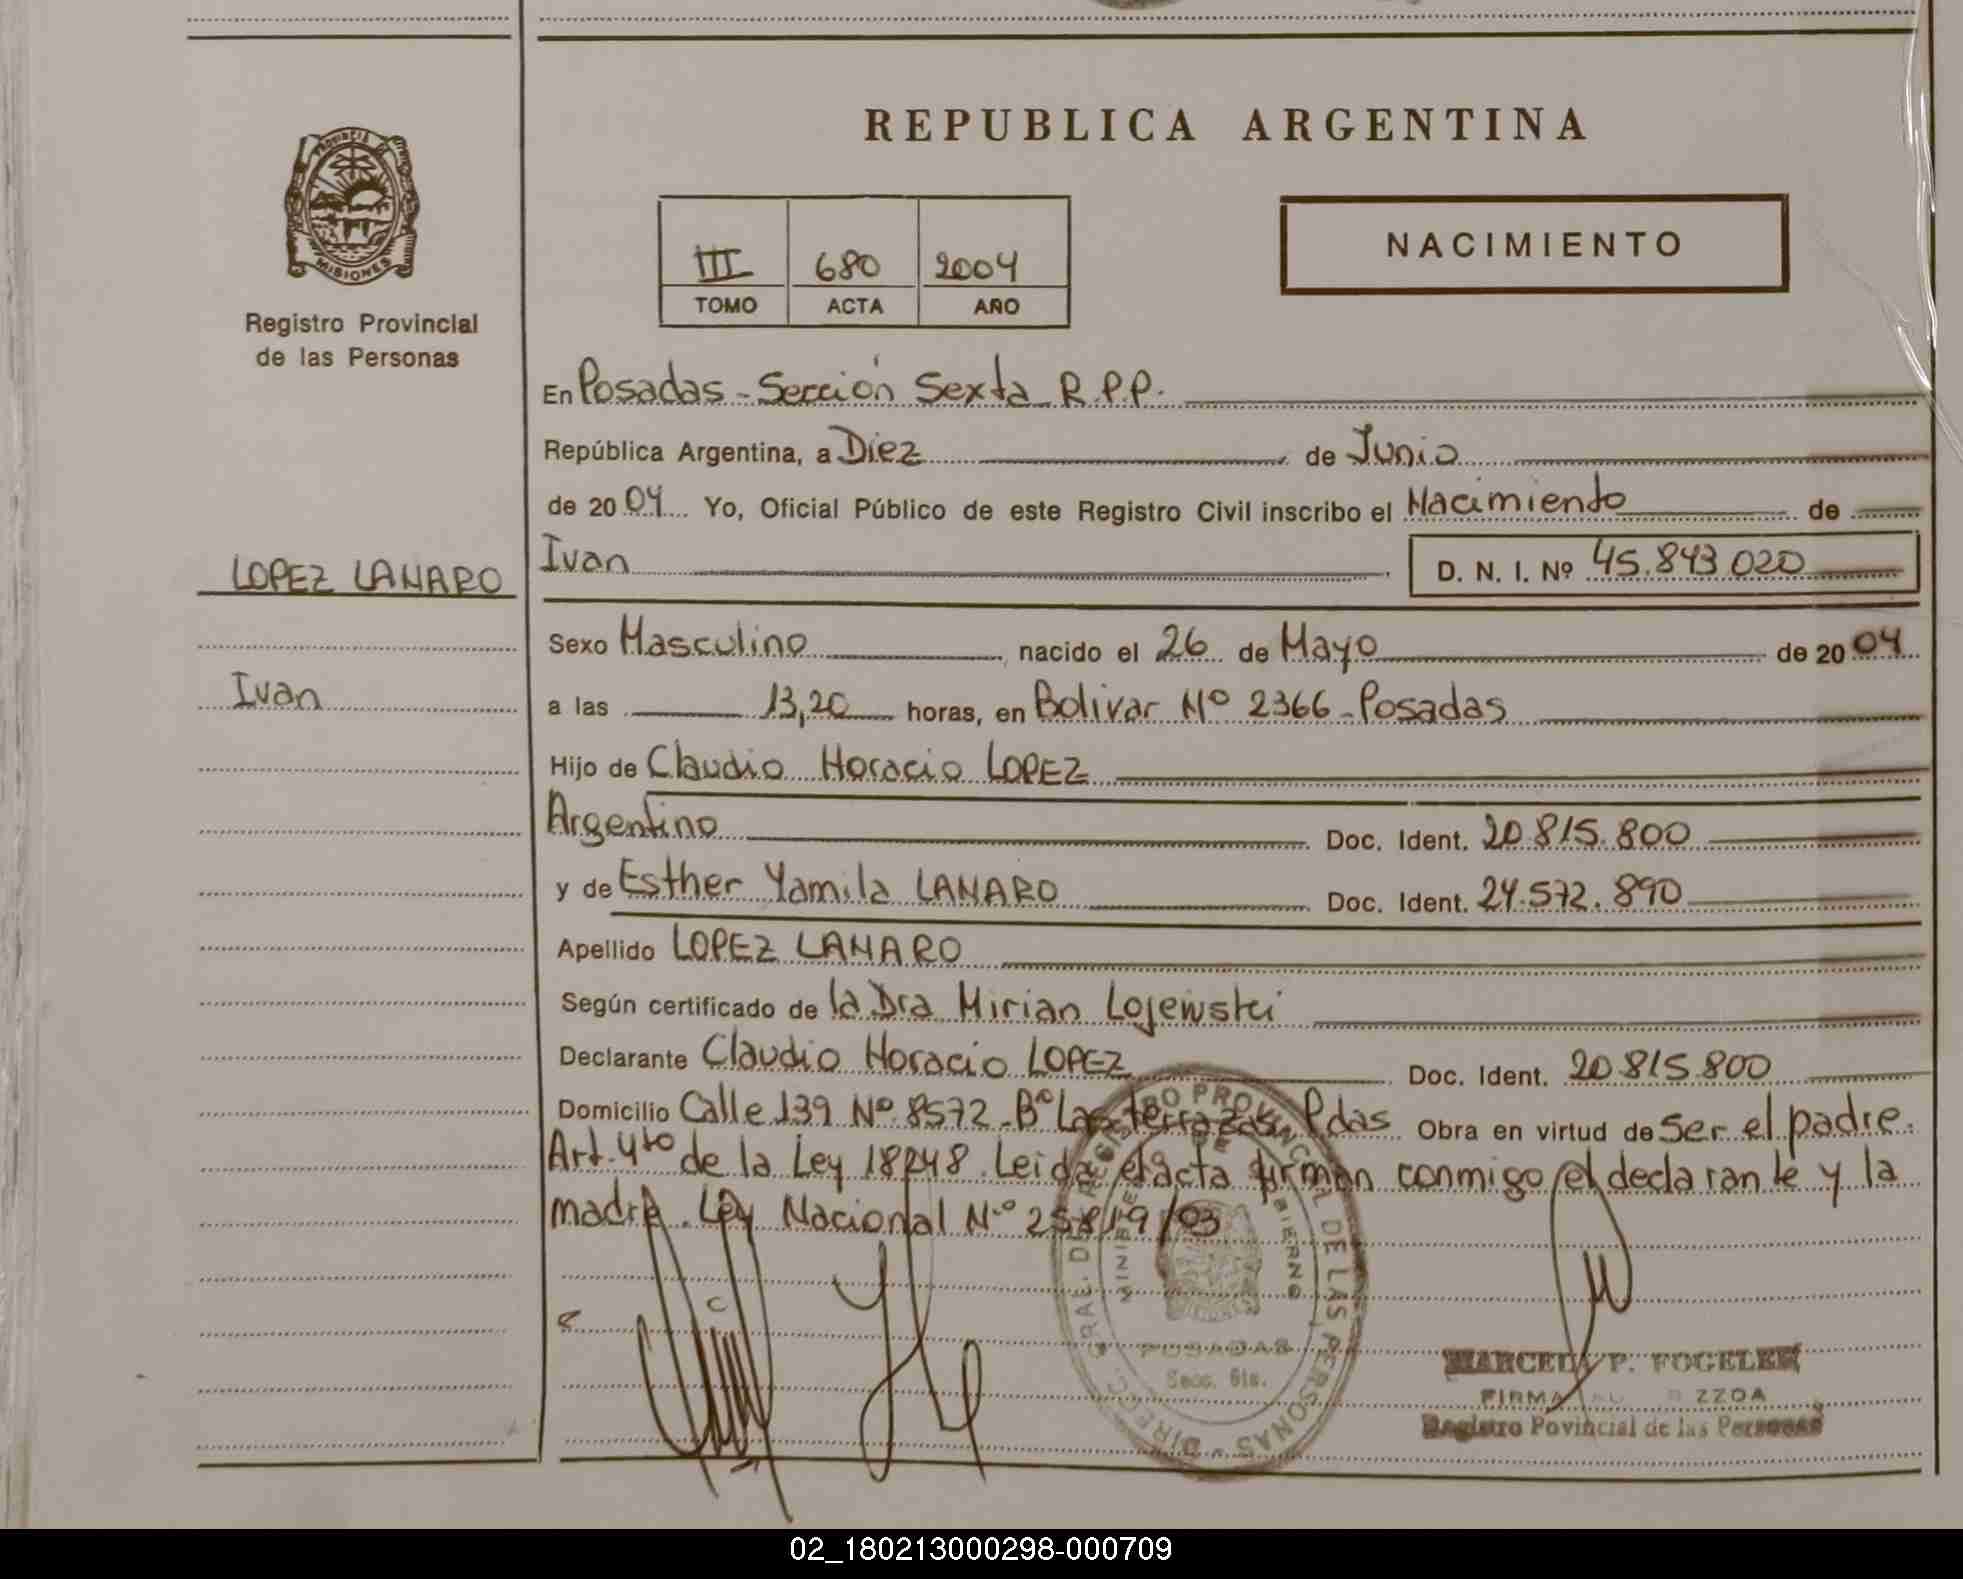 REPUBLICA ARGENTINA
PROVINCIA DE
MISIONES
Registro Provincial
de las Personas
III 680 2004
TOMO ACTA AÑO
NACIMIENTO
En Posadas - Sección Sexta R.P.P.
República Argentina, a Diez de Junio
de 2004 Yo, Oficial Público de este Registro Civil inscribo el Nacimiento de
LOPEZ LANARO
Ivan D. N. I. Nº 45.843.020
Sexo Masculino nacido el 26 de Mayo de 2004
Ivan
a las 13,20 horas, en Bolivar Nº 2366 - Posadas
Hijo de Claudio Horacio LOPEZ
Argentino Doc. Ident. 20.815.800
y de Esther Yamila LANARO Doc. Ident. 24.572.890
Apellido LOPEZ LANARO
Según certificado de la Dra Mirian Lojewski
Declarante Claudio Horacio LOPEZ Doc. Ident. 20.815.800
Domicilio Calle 139 Nº 8572 - Bº Las terrazas Pdas Obra en virtud de Ser el padre.
Art. 4to de la Ley 18248. Leida el acta firman conmigo el declarante y la
madre. Ley Nacional Nº 25819/03
DIRECC. GRAL. DE REGISTRO PROVINCIAL DE LAS PERSONAS
POSADAS
Secc. 6ta.
MARCELA P. FOGELER
FIRMA
Registro Povincial de las Personas
02_180213000298-000709